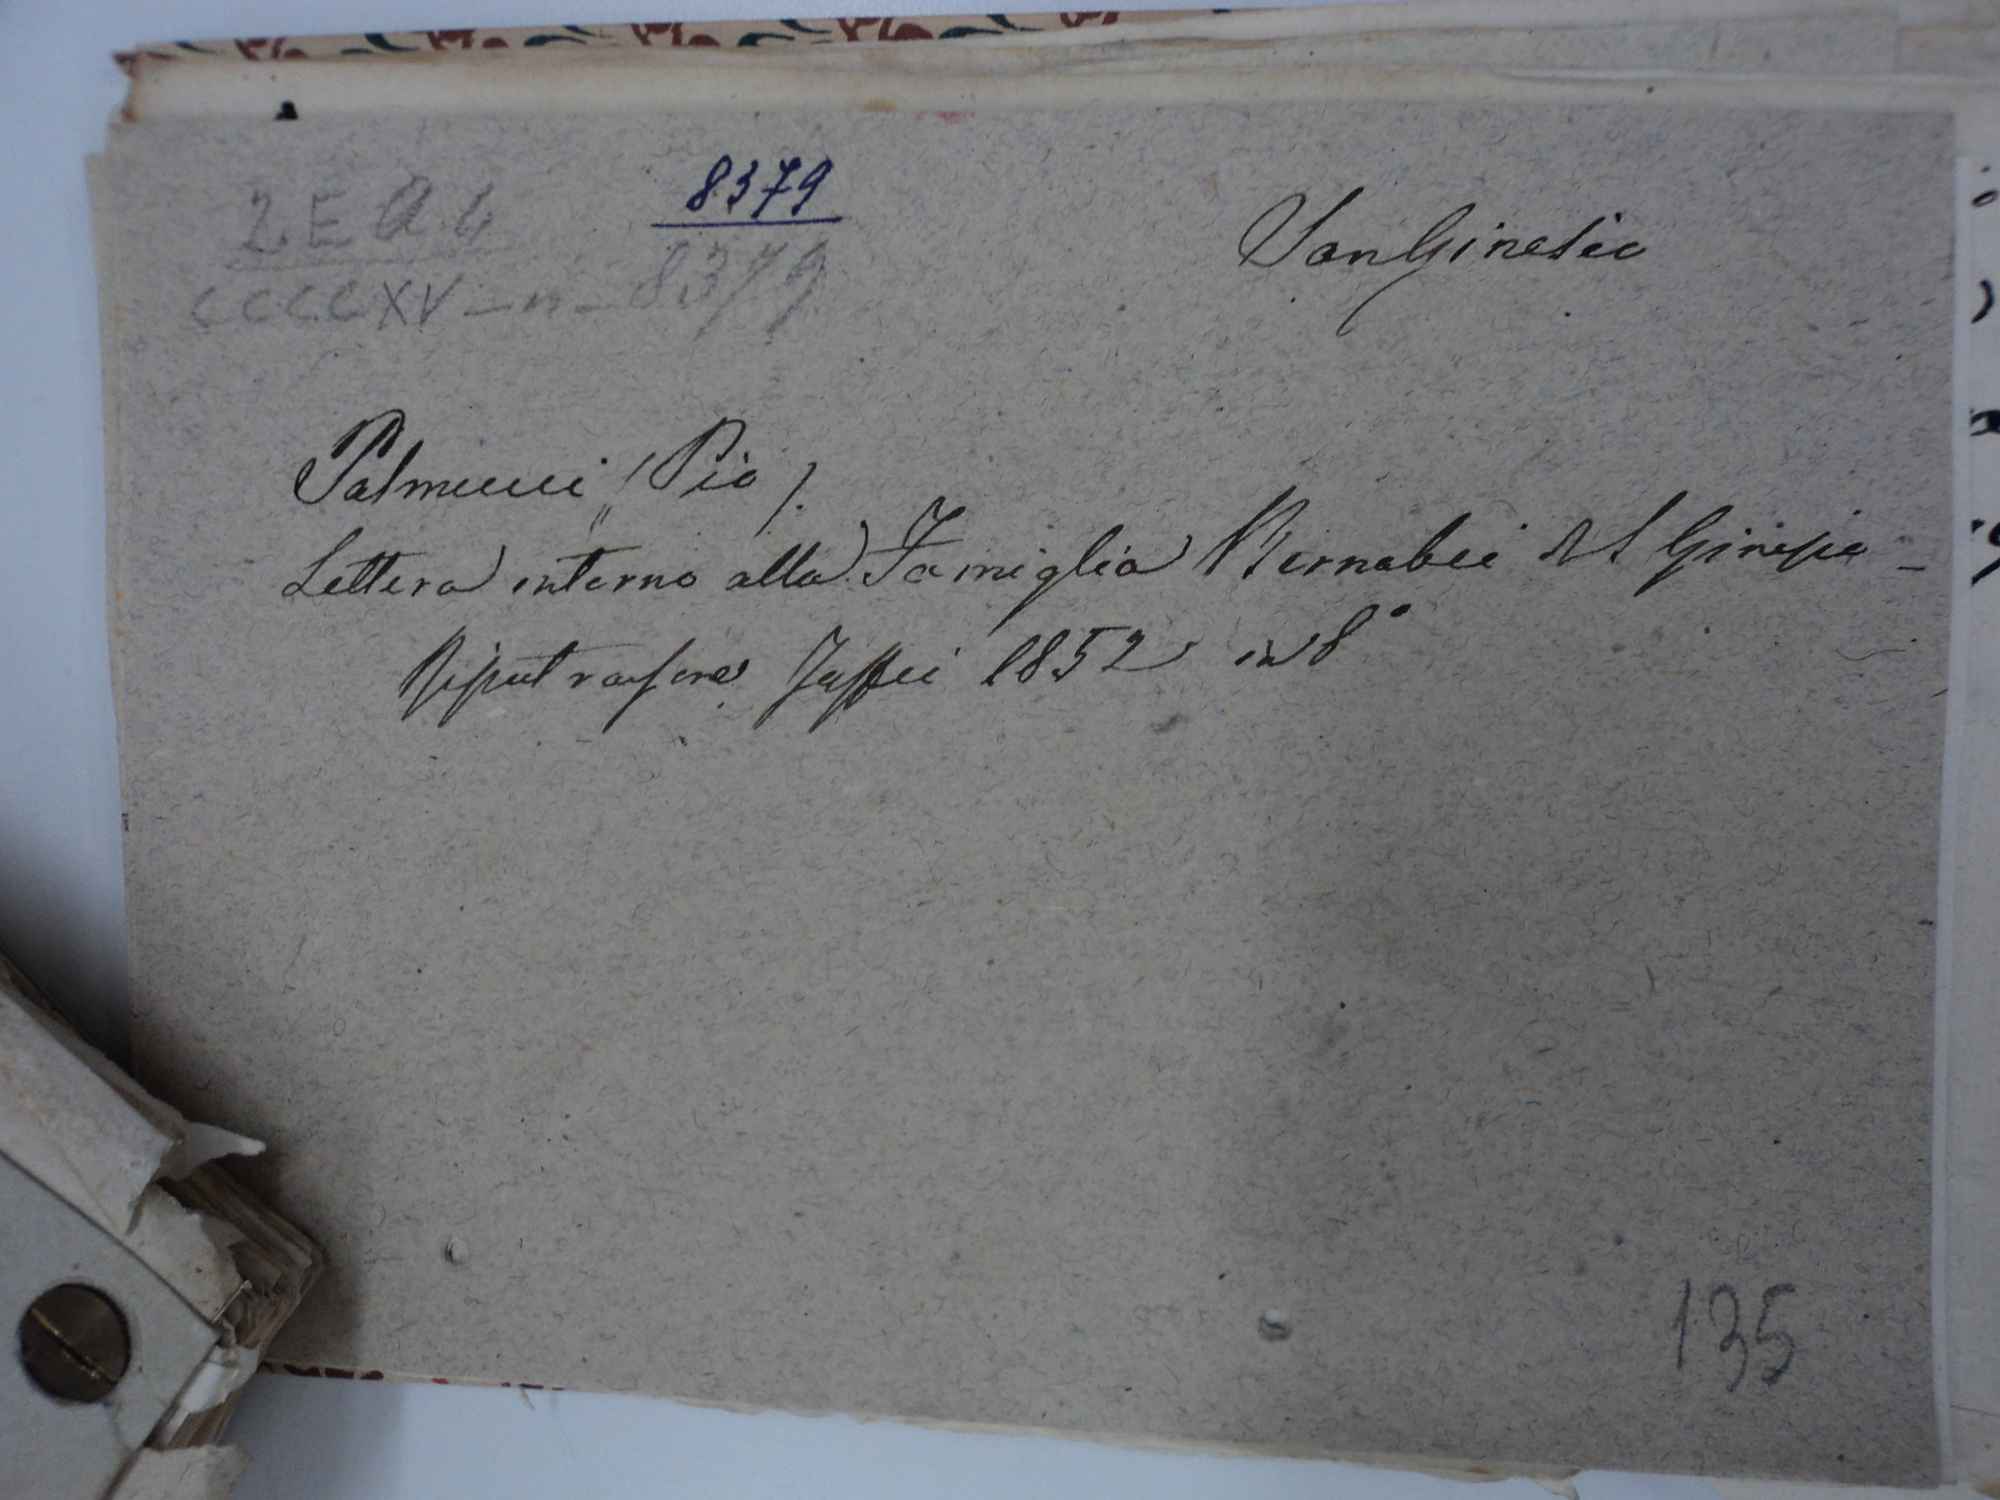 8379
2 E a 4
CCCCXV - n - 8379
San Ginesio
Palmucci (Pio).
Lettera intorno alla Famiglia Bernabei di S Ginesio -
Ripatransone Jaffei 1852 in 8°
135